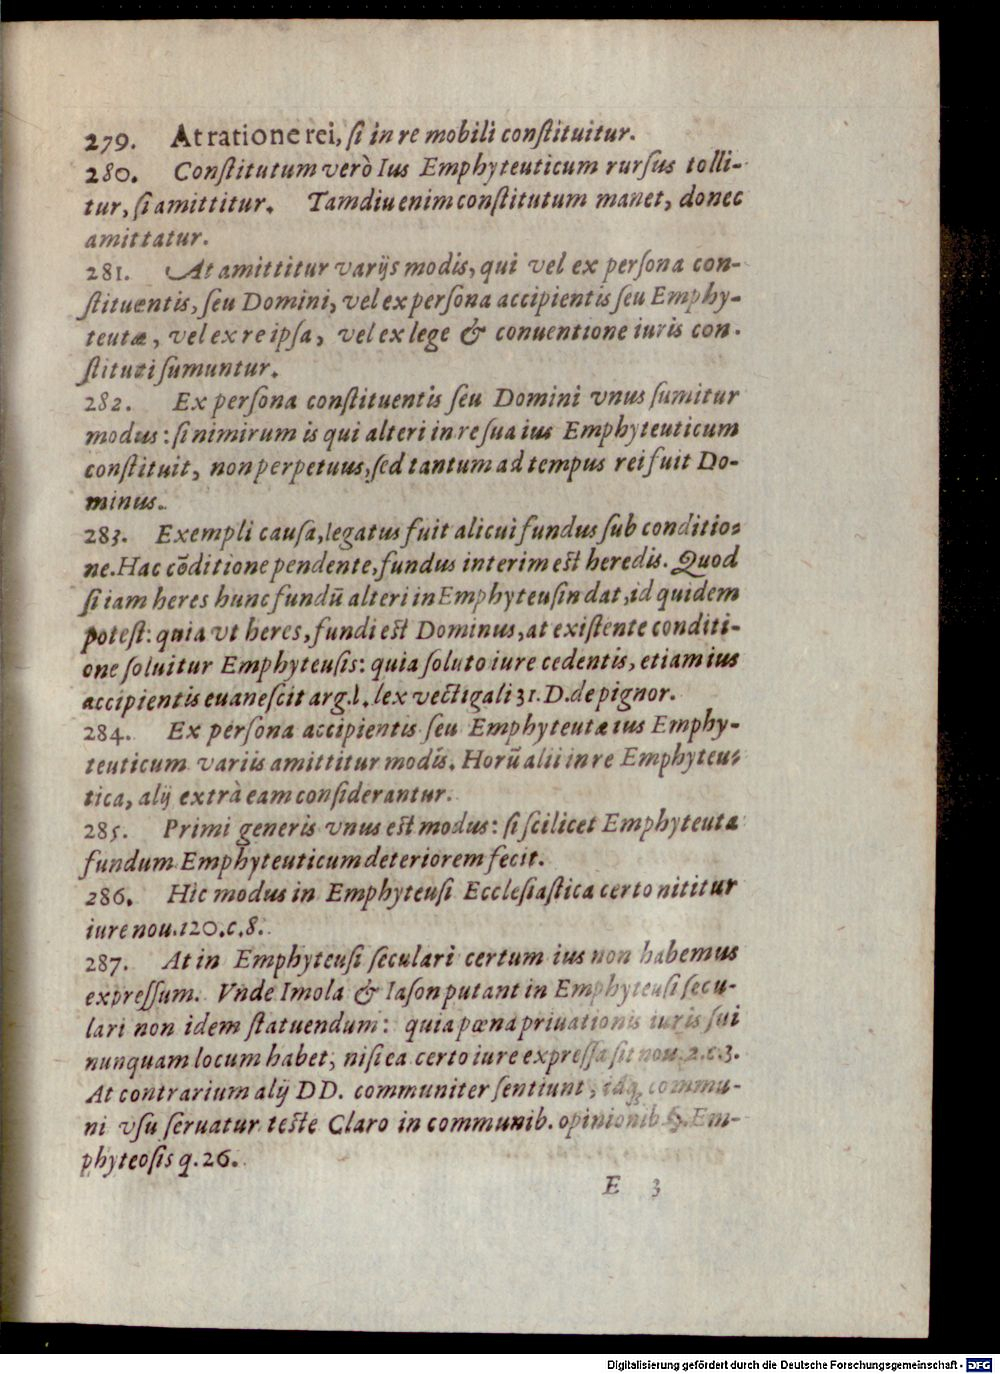 279. At ratione rei, ſi in re mobili conſtituitur.
280. Conſtitutum verò Ius Emphyteuticum rurſus tolli-
tur, ſi amittitur. Tamdiu enim conſtitutum manet, donec
amittatur.
281. At amittitur varijs modis, qui vel ex perſona con-
ſtituentis, ſeu Domini, vel ex perſona accipientis ſeu Emphy-
teutæ, vel ex re ipſa, vel ex lege & conuentione iuris con-
ſtituti ſumuntur.
282. Ex perſona conſtituentis ſeu Domini vnus ſumitur
modus: ſi nimirum is qui alteri in re ſua ius Emphyteuticum
conſtituit, non perpetuus, ſed tantum ad tempus rei fuit Do-
minus.
283. Exempli cauſa, legatus fuit alicui fundus ſub conditio-
ne. Hac cōditione pendente, fundus interim eſt heredis. Quod
ſi iam heres hunc fundū alteri in Emphyteuſin dat, id quidem
poteſt: quia vt heres, fundi eſt Dominus, at exiſtente conditi-
one ſoluitur Emphyteuſis: quia ſoluto iure cedentis, etiam ius
accipientis euaneſcit arg. l. lex vectigali 31. D. de pignor.
284. Ex perſona accipientis ſeu Emphyteutæ ius Emphy-
teuticum variis amittitur modis. Horū alii in re Emphyteu-
tica, alij extrà eam conſiderantur.
285. Primi generis vnus eſt modus: ſi ſcilicet Emphyteuta
fundum Emphyteuticum deteriorem fecit.
286. Hic modus in Emphyteuſi Eccleſiaſtica certo nititur
iure nou. 120. c. 8.
287. At in Emphyteuſi ſeculari certum ius non habemus
expreſſum. Vnde Imola & Iaſon putant in Emphyteuſi ſecu-
lari non idem ſtatuendum: quia pœna priuationis iuris ſui
nunquam locum habet, niſi ea certo iure expreſſa ſit nou. 2. c. 3.
At contrarium alij DD. communiter ſentiunt, idq́; commu-
ni vſu ſeruatur teſte Claro in communib. opinionib. §. Em-
phyteoſis q. 26.
E 3
Digitalisierung gefördert durch die Deutsche Forschungsgemeinschaft - DFG